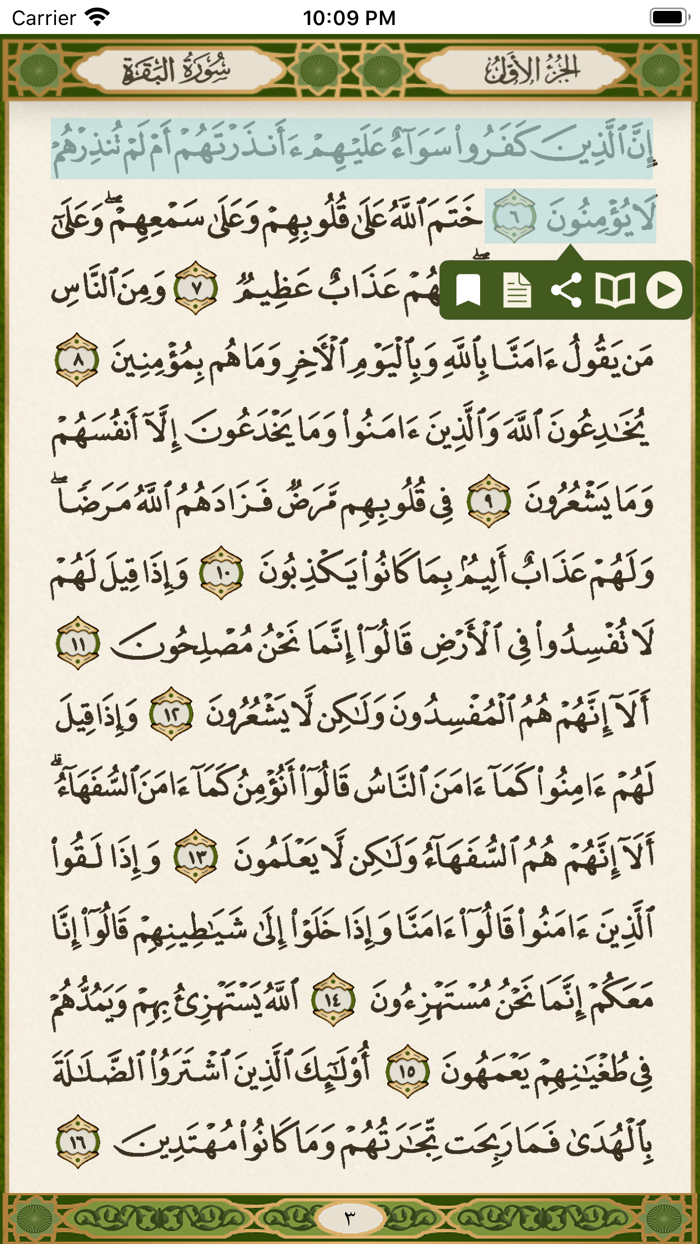 Carrier 10:09 PM
الجزء الأول سورة البقرة
إِنَّ ٱلَّذِينَ كَفَرُوا۟ سَوَآءٌ عَلَيْهِمْ ءَأَنذَرْتَهُمْ أَمْ لَمْ تُنذِرْهُمْ
لَا يُؤْمِنُونَ ٦ خَتَمَ ٱللَّهُ عَلَىٰ قُلُوبِهِمْ وَعَلَىٰ سَمْعِهِمْ ۖ وَعَلَىٰٓ
هُمْ عَذَابٌ عَظِيمٌ ٧ وَمِنَ ٱلنَّاسِ
مَن يَقُولُ ءَامَنَّا بِٱللَّهِ وَبِٱلْيَوْمِ ٱلْـَٔاخِرِ وَمَا هُم بِمُؤْمِنِينَ ٨
يُخَـٰدِعُونَ ٱللَّهَ وَٱلَّذِينَ ءَامَنُوا۟ وَمَا يَخْدَعُونَ إِلَّآ أَنفُسَهُمْ
وَمَا يَشْعُرُونَ ٩ فِى قُلُوبِهِم مَّرَضٌ فَزَادَهُمُ ٱللَّهُ مَرَضًا ۖ
وَلَهُمْ عَذَابٌ أَلِيمٌۢ بِمَا كَانُوا۟ يَكْذِبُونَ ١٠ وَإِذَا قِيلَ لَهُمْ
لَا تُفْسِدُوا۟ فِى ٱلْأَرْضِ قَالُوٓا۟ إِنَّمَا نَحْنُ مُصْلِحُونَ ١١
أَلَآ إِنَّهُمْ هُمُ ٱلْمُفْسِدُونَ وَلَـٰكِن لَّا يَشْعُرُونَ ١٢ وَإِذَا قِيلَ
لَهُمْ ءَامِنُوا۟ كَمَآ ءَامَنَ ٱلنَّاسُ قَالُوٓا۟ أَنُؤْمِنُ كَمَآ ءَامَنَ ٱلسُّفَهَآءُ ۗ
أَلَآ إِنَّهُمْ هُمُ ٱلسُّفَهَآءُ وَلَـٰكِن لَّا يَعْلَمُونَ ١٣ وَإِذَا لَقُوا۟
ٱلَّذِينَ ءَامَنُوا۟ قَالُوٓا۟ ءَامَنَّا وَإِذَا خَلَوْا۟ إِلَىٰ شَيَـٰطِينِهِمْ قَالُوٓا۟ إِنَّا
مَعَكُمْ إِنَّمَا نَحْنُ مُسْتَهْزِءُونَ ١٤ ٱللَّهُ يَسْتَهْزِئُ بِهِمْ وَيَمُدُّهُمْ
فِى طُغْيَـٰنِهِمْ يَعْمَهُونَ ١٥ أُو۟لَـٰٓئِكَ ٱلَّذِينَ ٱشْتَرَوُا۟ ٱلضَّلَـٰلَةَ
بِٱلْهُدَىٰ فَمَا رَبِحَت تِّجَـٰرَتُهُمْ وَمَا كَانُوا۟ مُهْتَدِينَ ١٦
٣